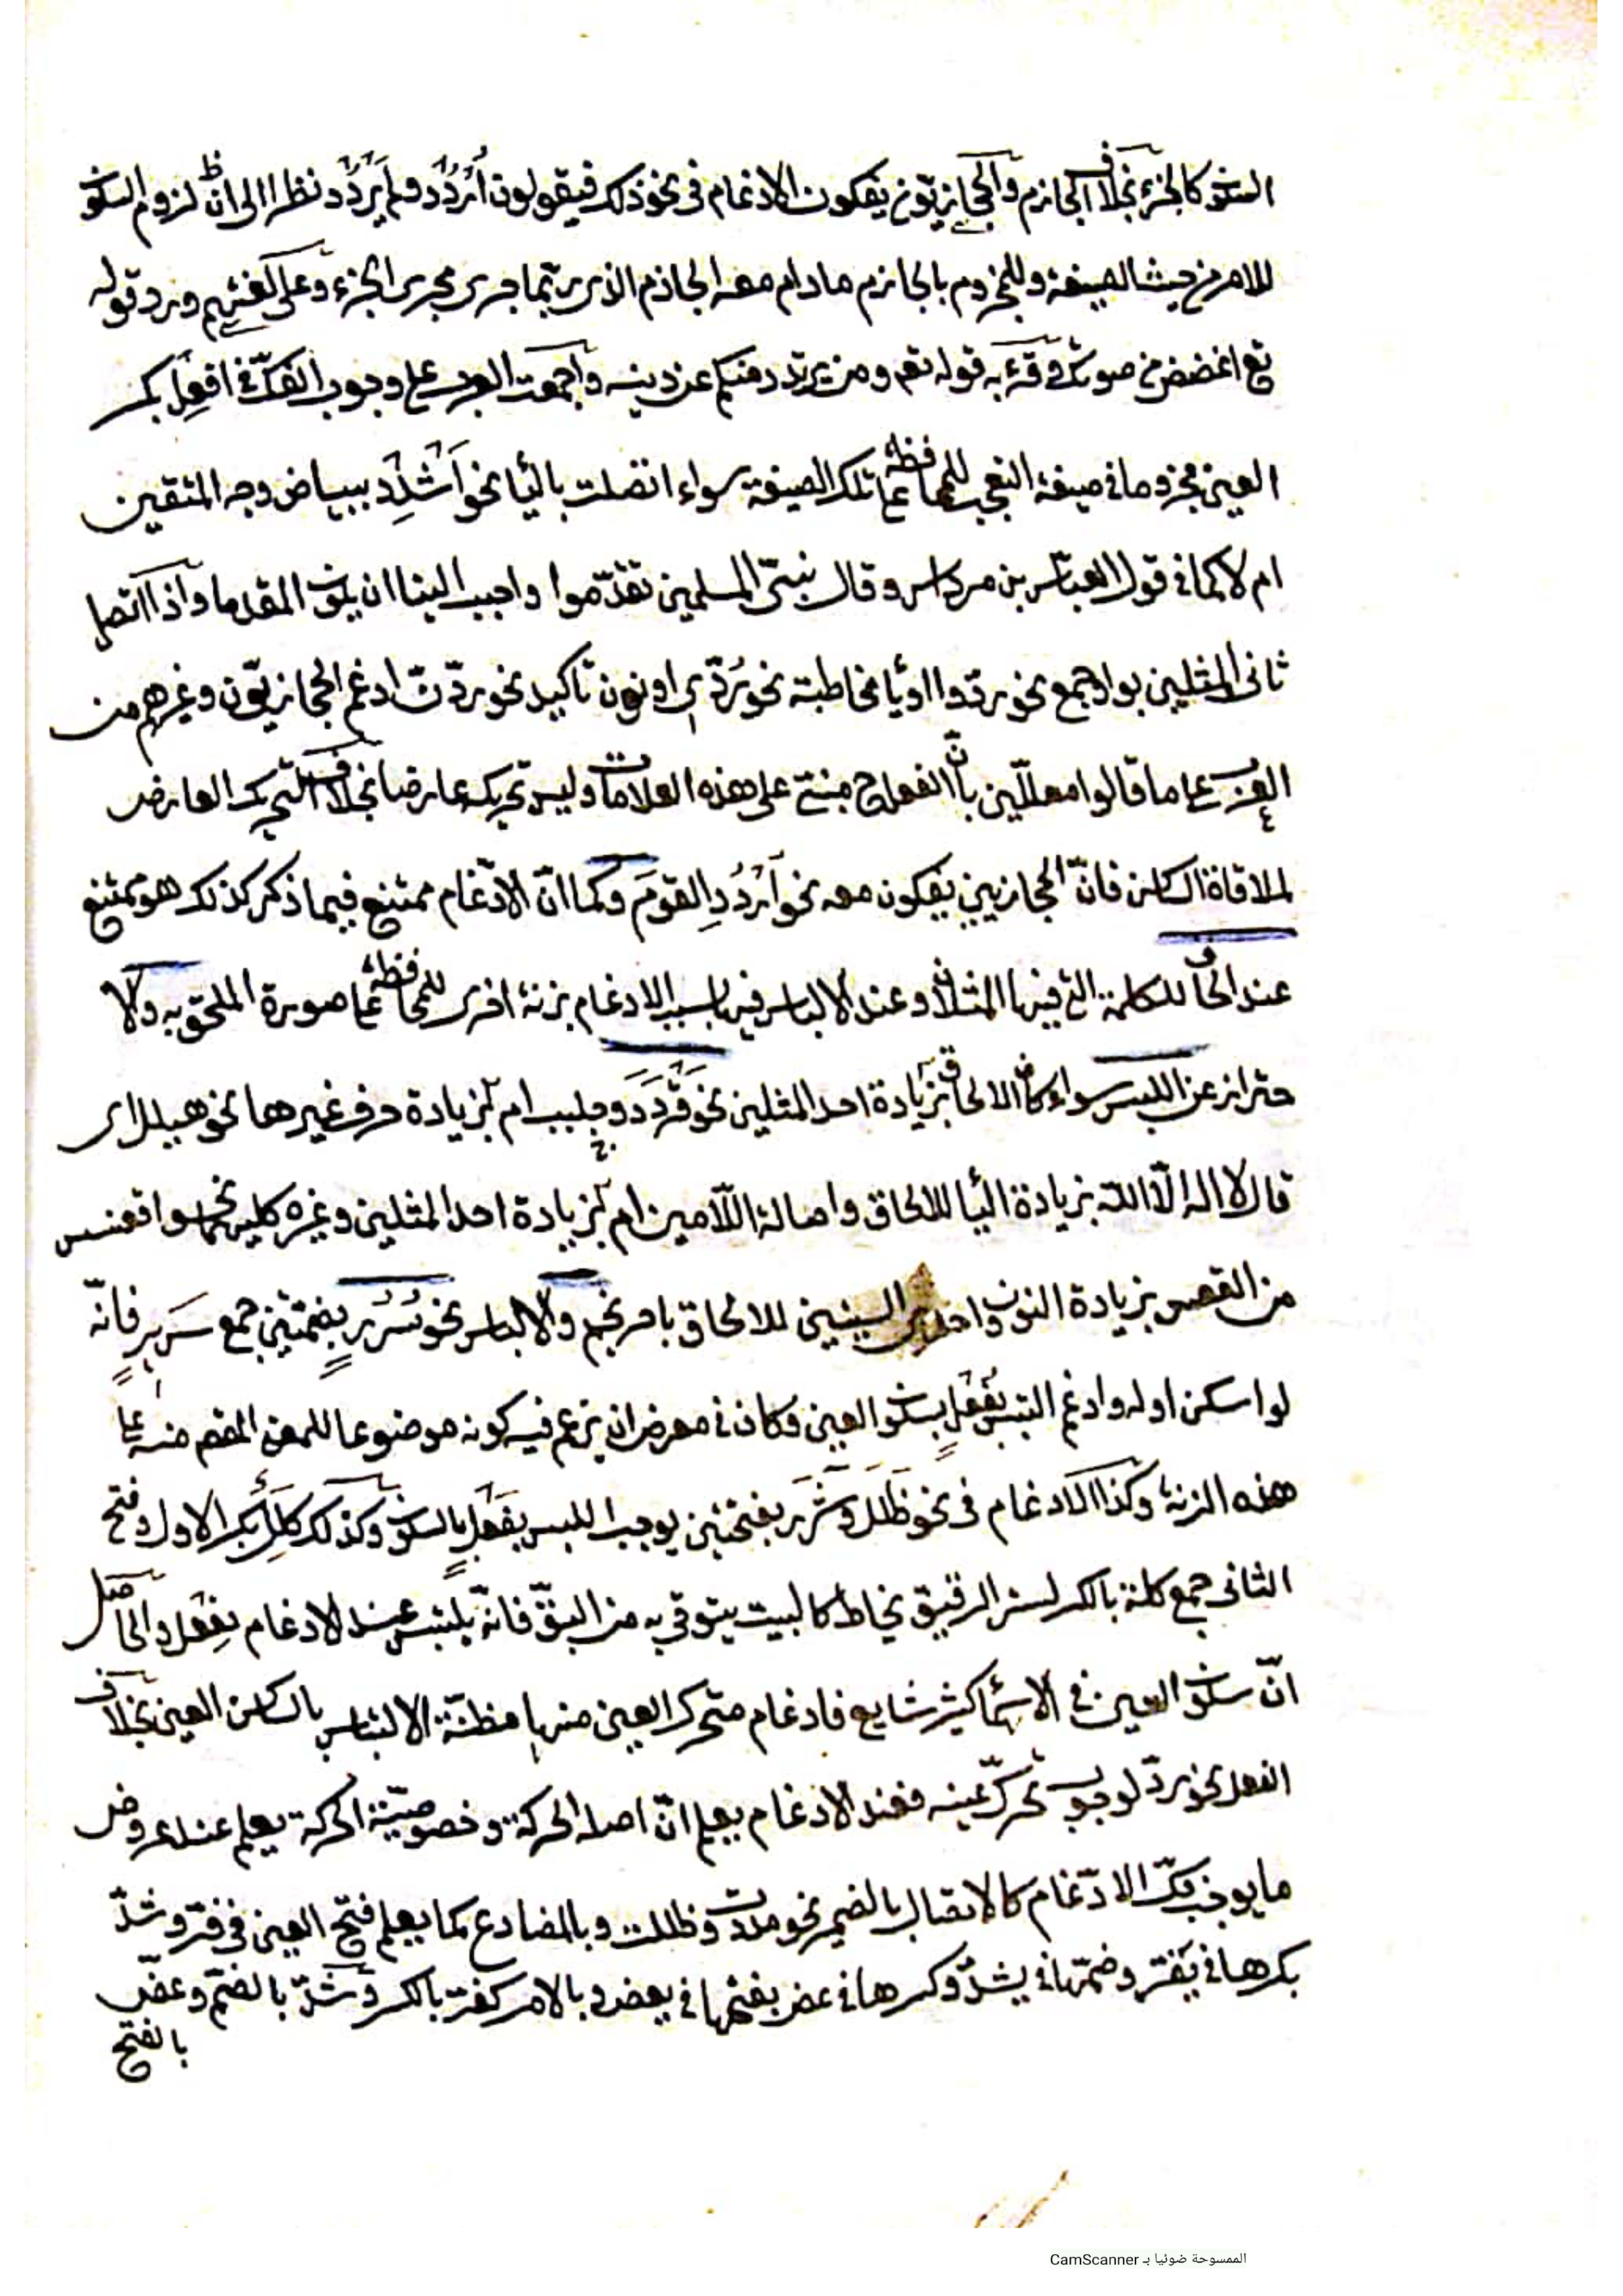 السكون كالجزء بخلاف الجازم والحجازيّون يفكون الادغام في نحو ذلك فيقولون اُرْدُد ولم يَرْدُد نظرا الى انّ لزوم السكون
للامر من حيث الصيغة وللمجزوم بالجازم مادام معه الجاذم الذي ربّما جرى مجرى الجزء وعلى لغتهم ورد قوله
تع اغضض من صوتك وقرء به قوله تعم ومن يرتدد منكم عن دينه واجمعت العرب على وجوب الفكّ في افعِل بكسر
العين مجزوما في صيغة التعجب للمحافظة على تلك الصيغة سواء اتصلت بالياء نحو اَشْدِد ببياض وجه المتقين
ام لا كما في قول العبّاس بن مرداس وقال نبيّ المسلمين تقدّموا واحبب الينا ان يكون المقدما واذا اتصل
ثاني المثلين بواو جمع نحو ردّوا او ياء مخاطبة نحو رُدّي او نون تاكيد نحو ردّنّ ادغم الحجازيّون وغيرهم من
العرب على ما قالوا معلّلين بأنّ الفعل ح مبنيّ على هذه العلامات وليس تحريكه عارضا بخلاف التحريك العارض
لملاقاة الساكن فانّ الحجازيين يفكون معه نحو اُرْدُدِ القومَ وكما انّ الادّغام ممتنع فيما ذكر كذلك هو ممتنع
عند الحاق للكلمة التي فيها المثلان وعند الالباس فيها بسبب الادغام بزنة اخرى للمحافظة على صورة الملحق به والا
حتراز عن اللبس سواء كان الالحاق بزيادة احد المثلين نحو قَرْدَد وجلبب ام بزيادة حرف غيرها نحو هيلل اي
قال لا اله الّا الله بزيادة الياء للالحاق واصالة اللّامين ام بزيادة احد المثلين وغيره كليهما نحو اقعنسس
من القعس بزيادة النون واحدى السينين للالحاق باحرنجم والالباس نحو سُرُر بضمّتين جمع سَرِير فانّه
لو اسكن اوله وادغم التبس بفُعْلٍ بسكون العين وكان في معرض ان يزعم فيه كونه موضوعا للمعنى المقص منه على
هذه الزنة وكذا الادغام في نحو ظَلَل وشَرَر بفتحتين يوجب اللبس بفَعْلٍ بالسكون وكذلك كِلَل بكسر الاول وفتح
الثاني جمع كلة بالكسر لستر الرقيق يخاط كالبيت يتوقي به من البقّ فانّه يلتبس عند الادغام بفِعْل والحاصل
انّ سكون العين في الاسماء كثير شايع فادغام متحرك العين منها مظنّة الالتباس بالساكن العين بخلاف
الفعل نحو ردّ لوجوب تحرّك عينه فعند الادغام يعلم انّ اصله الحركة وخصوصيّة الحركة يعلم عند عروض
ما يوجب فكّ الادّغام كالاتصال بالضمير نحو مددت وظللت وبالمضارع كما يعلم فتح العين في فرّ وشدّ
بكسرها في يَفرّ وضمّها في يشدّ وكسرها في عض بفتحها في يعض وبالامر كفرّ بالكسر وشدّ بالضمّ وعضّ
بالفتح
الممسوحة ضوئيا بـ CamScanner